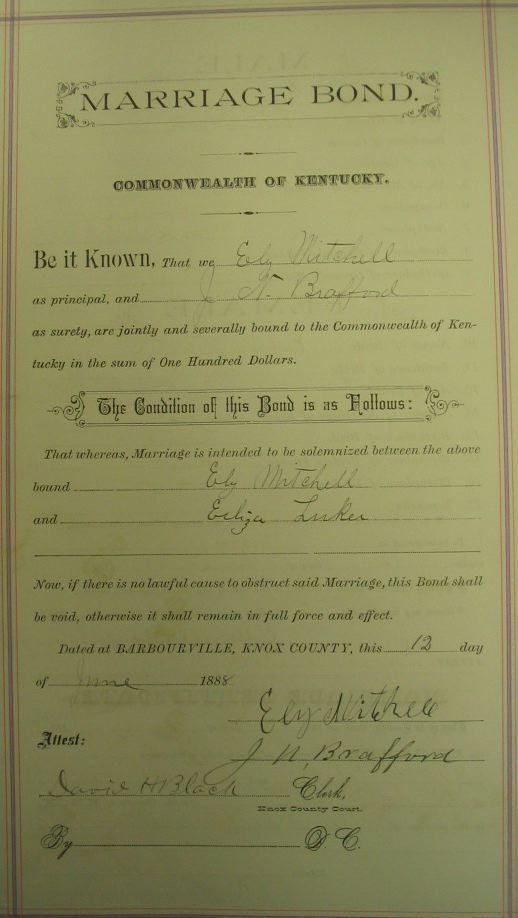 MARRIAGE BOND.
COMMONWEALTH OF KENTUCKY.
Be it Known, That we Ely Mitchell
as principal, and J. N. Brafford
as surety, are jointly and severally bound to the Commonwealth of Ken-
tucky in the sum of One Hundred Dollars.
The Condition of this Bond is as Follows:
That whereas, Marriage is intended to be solemnized between the above
bound Ely Mitchell
and Eliza Luker
Now, if there is no lawful cause to obstruct said Marriage, this Bond shall
be void, otherwise it shall remain in full force and effect.
Dated at BARBOURVILLE, KNOX COUNTY, this 12 day
of June 1888
Ely Mitchell
Attest:
J N. Brafford
David H Black Clerk,
Knox County Court.
By D C.